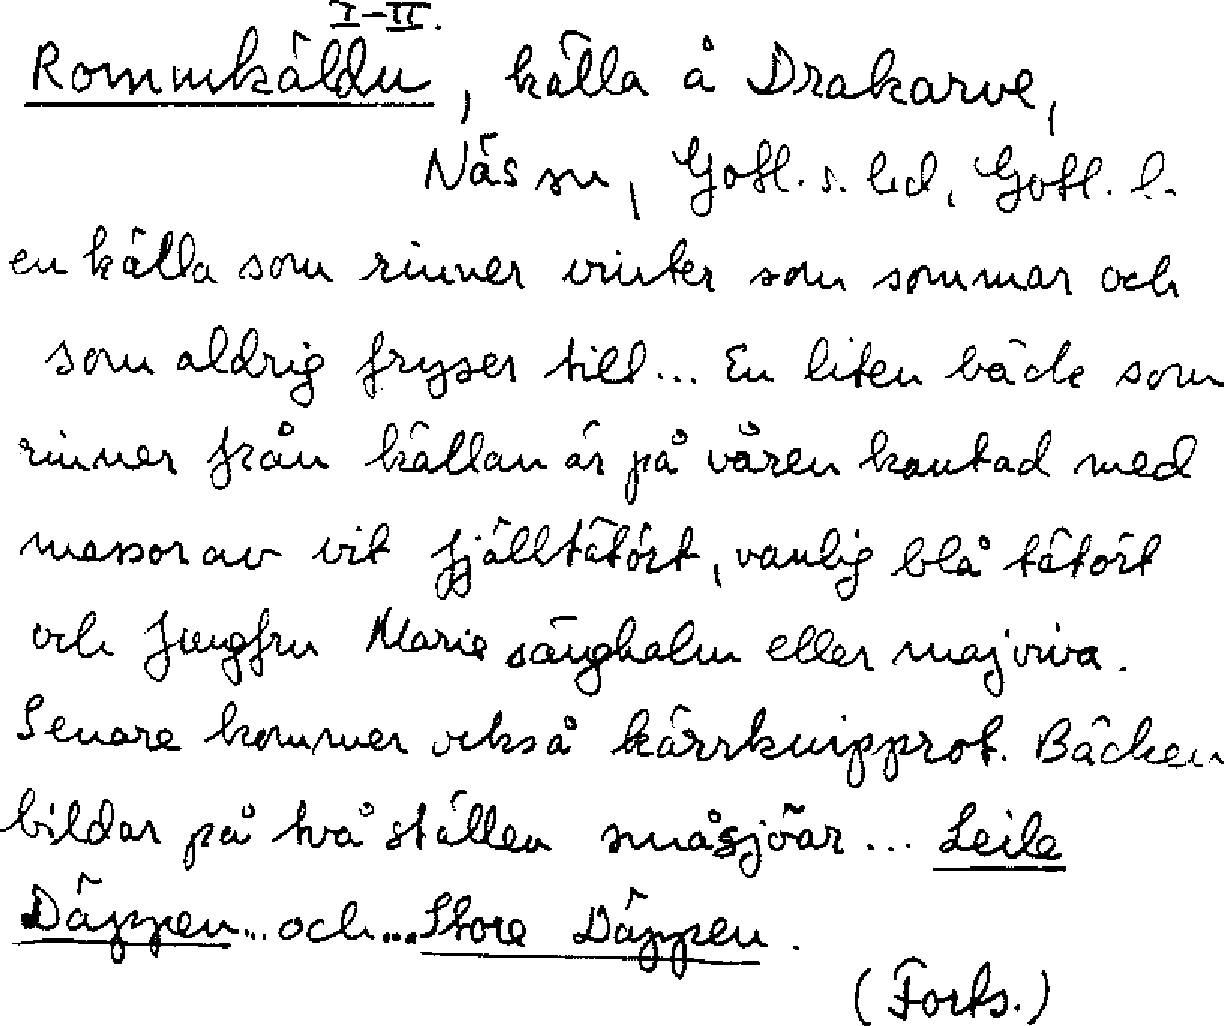 I-II.
Rommkäldu, källa å Drakarve,
Näs sn, Gotl. s. led, Gotl. l.
en källa som rinner vinter som sommar och
som aldrig fryser till... En liten bäck som
rinner från källan är på våren kantad med
massor av vit fjälltätört, vanlig blå tätört
och Jungfru Marie sänghalm eller majviva.
Senare kommer också kärrknipprot. Bäcken
bildar på två ställen småsjöar... Leile
Däppen... och... Store Däppen.
(Forts.)